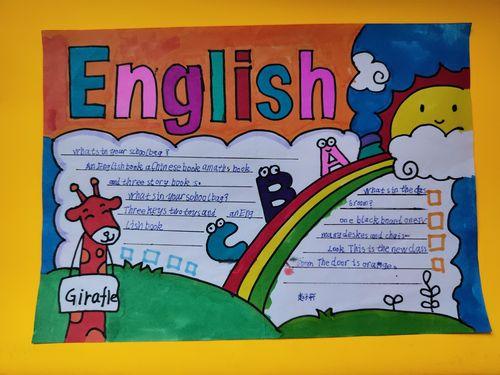 English
What's in your schoolbag?
An English book a Chinese book a maths book
and three story books.
What's in your schoolbag?
Three keys two toys and an Eng
lish book
A
B
C
What's in the clas
sroom?
one blackboard one
many deskes and chais
Look This is the new class
room The door is orange.
Girafle